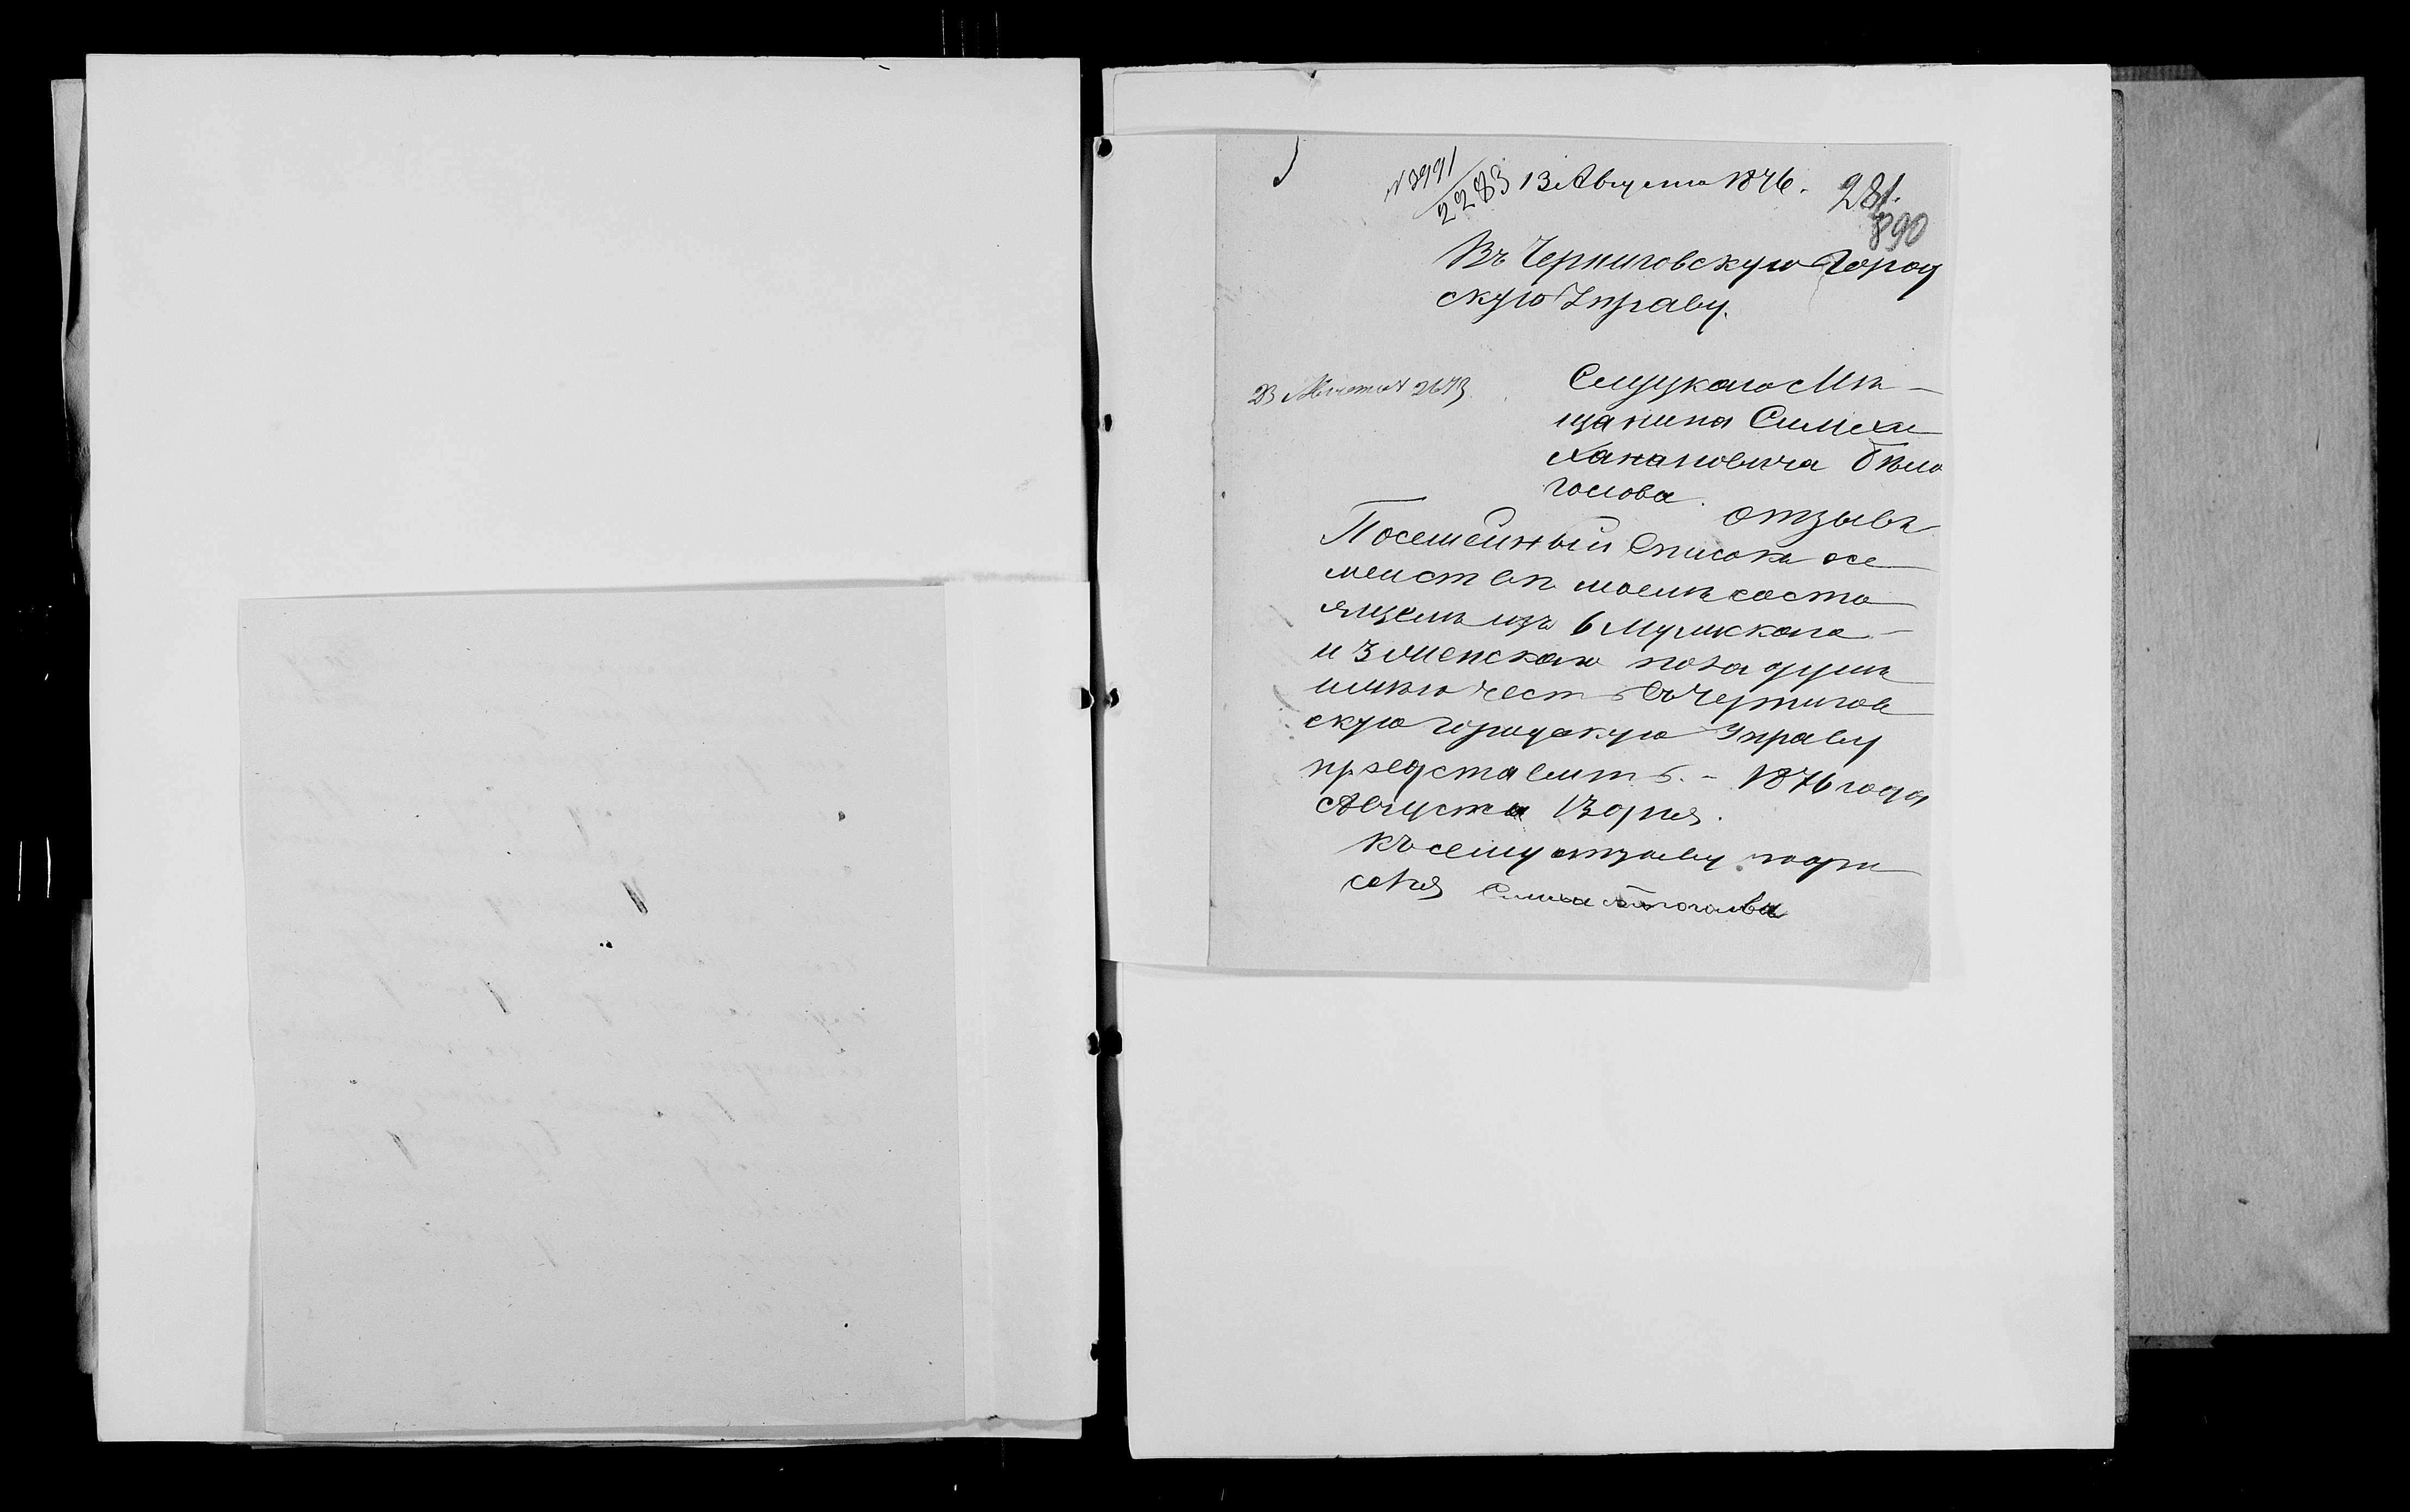 № 3991
2283 13 Августа 1876.
281.
890
Въ Черниговскую Город
скую Управу.
Слуцкого Мѣ-
щанина Симхи
Ханановича Бѣло
голова.
отзывъ
Посемейный Списокъ о се
мействѣ моемъ состо
ящемъ изъ 6 Мужскаго
и 3 женскаго пола душъ
имѣю честь Въ Чернигов
скую городскую Управу
представить. - 1876 года
Августа 13 дня.
Къ сему отзыву подпи
сался Симха Белоголова